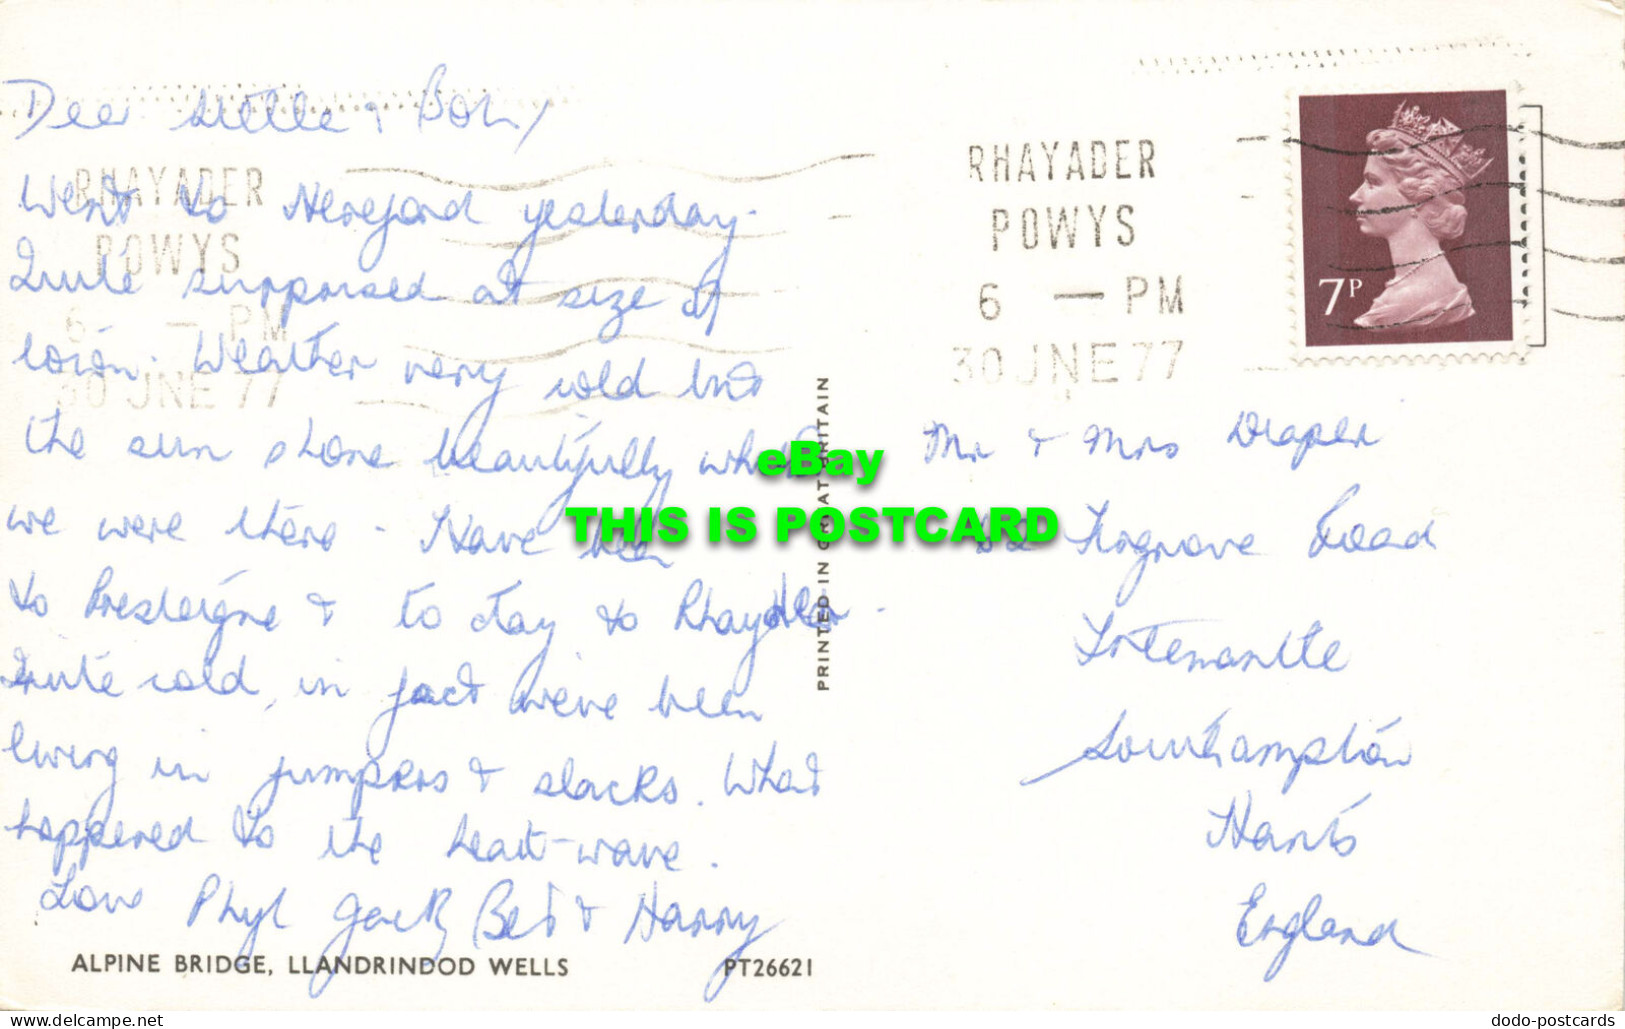 Dear & Bob,
Went to Hereford yesterday.
Quite surpprised at size of
town. Weather very cold but
the sun shone beautifully whilst
we were there - Have been
to Presteigne & to day to Rhayader -
Quite cold, in fact weve been
living in jumpers & slacks. What
happened to the heat-wave.
Love Phyl Jack Bet & Harry
ALPINE BRIDGE, LLANDRINDOD WELLS
PT26621
RHAYADER
POWYS
6 — PM
30 JNE 77
PRINTED IN GREAT BRITAIN
RHAYADER
POWYS
6 — PM
30 JNE 77
7P
Mr & Mrs Draper
Road
Southampton
Hants
England
eBay
THIS IS POSTCARD
www.delcampe.net
dodo-postcards